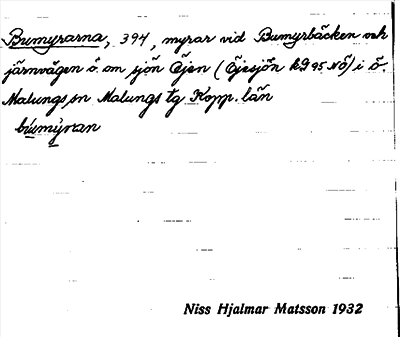 Bumyrarna, 394, myrar vid Bumyrbäcken och
järnvägen ö. om sjön Öjen (Öjesjön kG 95 NÖ) i ö.
Malungs sn Malungs tg Kopp. län
bùmýran
Niss Hjalmar Matsson 1932